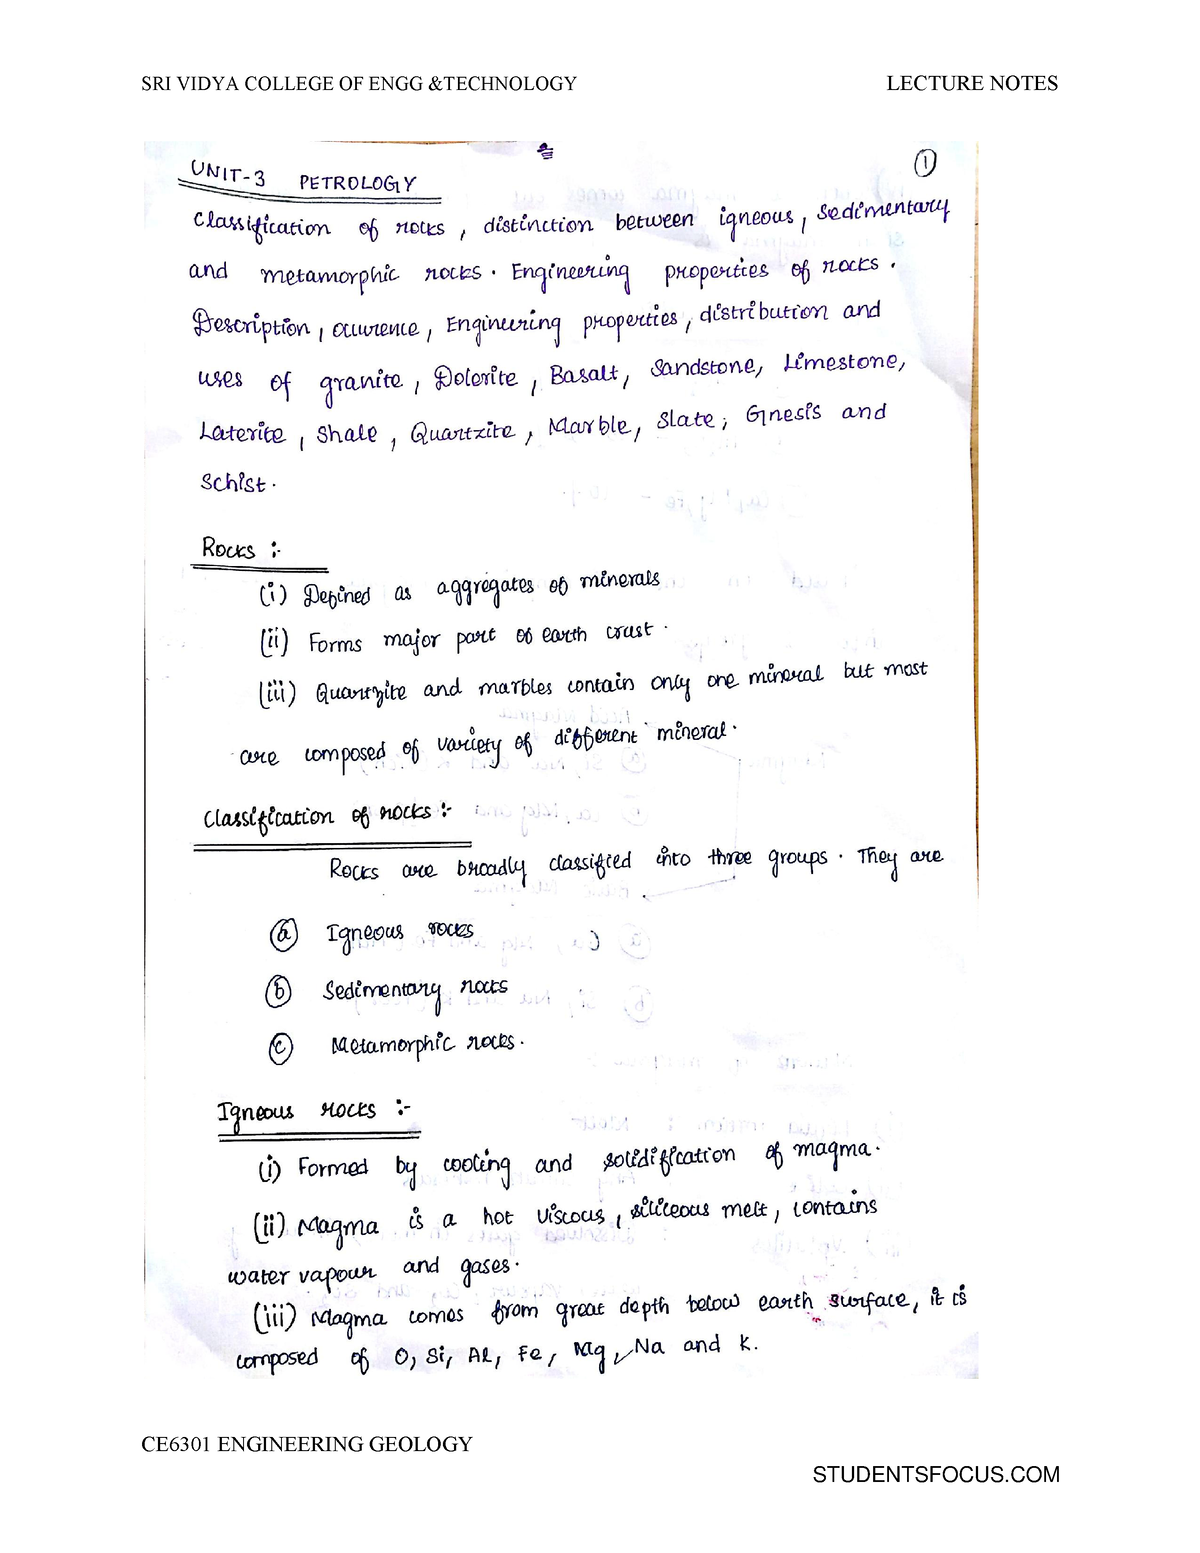 SRI VIDYA COLLEGE OF ENGG &TECHNOLOGY LECTURE NOTES
1
UNIT-3 PETROLOGY
Classification of rocks, distinction between igneous, sedimentary
and metamorphic rocks. Engineering properties of rocks.
Description, occurence, Engineering properties, distribution and
uses of granite, Dolerite, Basalt, Sandstone, Limestone,
Laterite, Shale, Quartzite, Marble, Slate, Gnesis and
Schist.
Rocks :-
(i) Defined as aggregates of minerals
(ii) Forms major part of earth crust.
(iii) Quartzite and marbles contain only one mineral but most
are composed of variety of different mineral.
Classification of rocks :-
Rocks are broadly classified into three groups. They are
(a) Igneous rocks
(b) Sedimentary rocks
(c) Metamorphic rocks.
Igneous rocks :-
(i) Formed by cooling and solidification of magma.
(ii) Magma is a hot viscous, siliceous melt, contains
water vapour and gases.
(iii) Magma comes from great depth below earth surface, it is
composed of O, Si, Al, Fe, Mg, Na and K.
CE6301 ENGINEERING GEOLOGY
STUDENTSFOCUS.COM